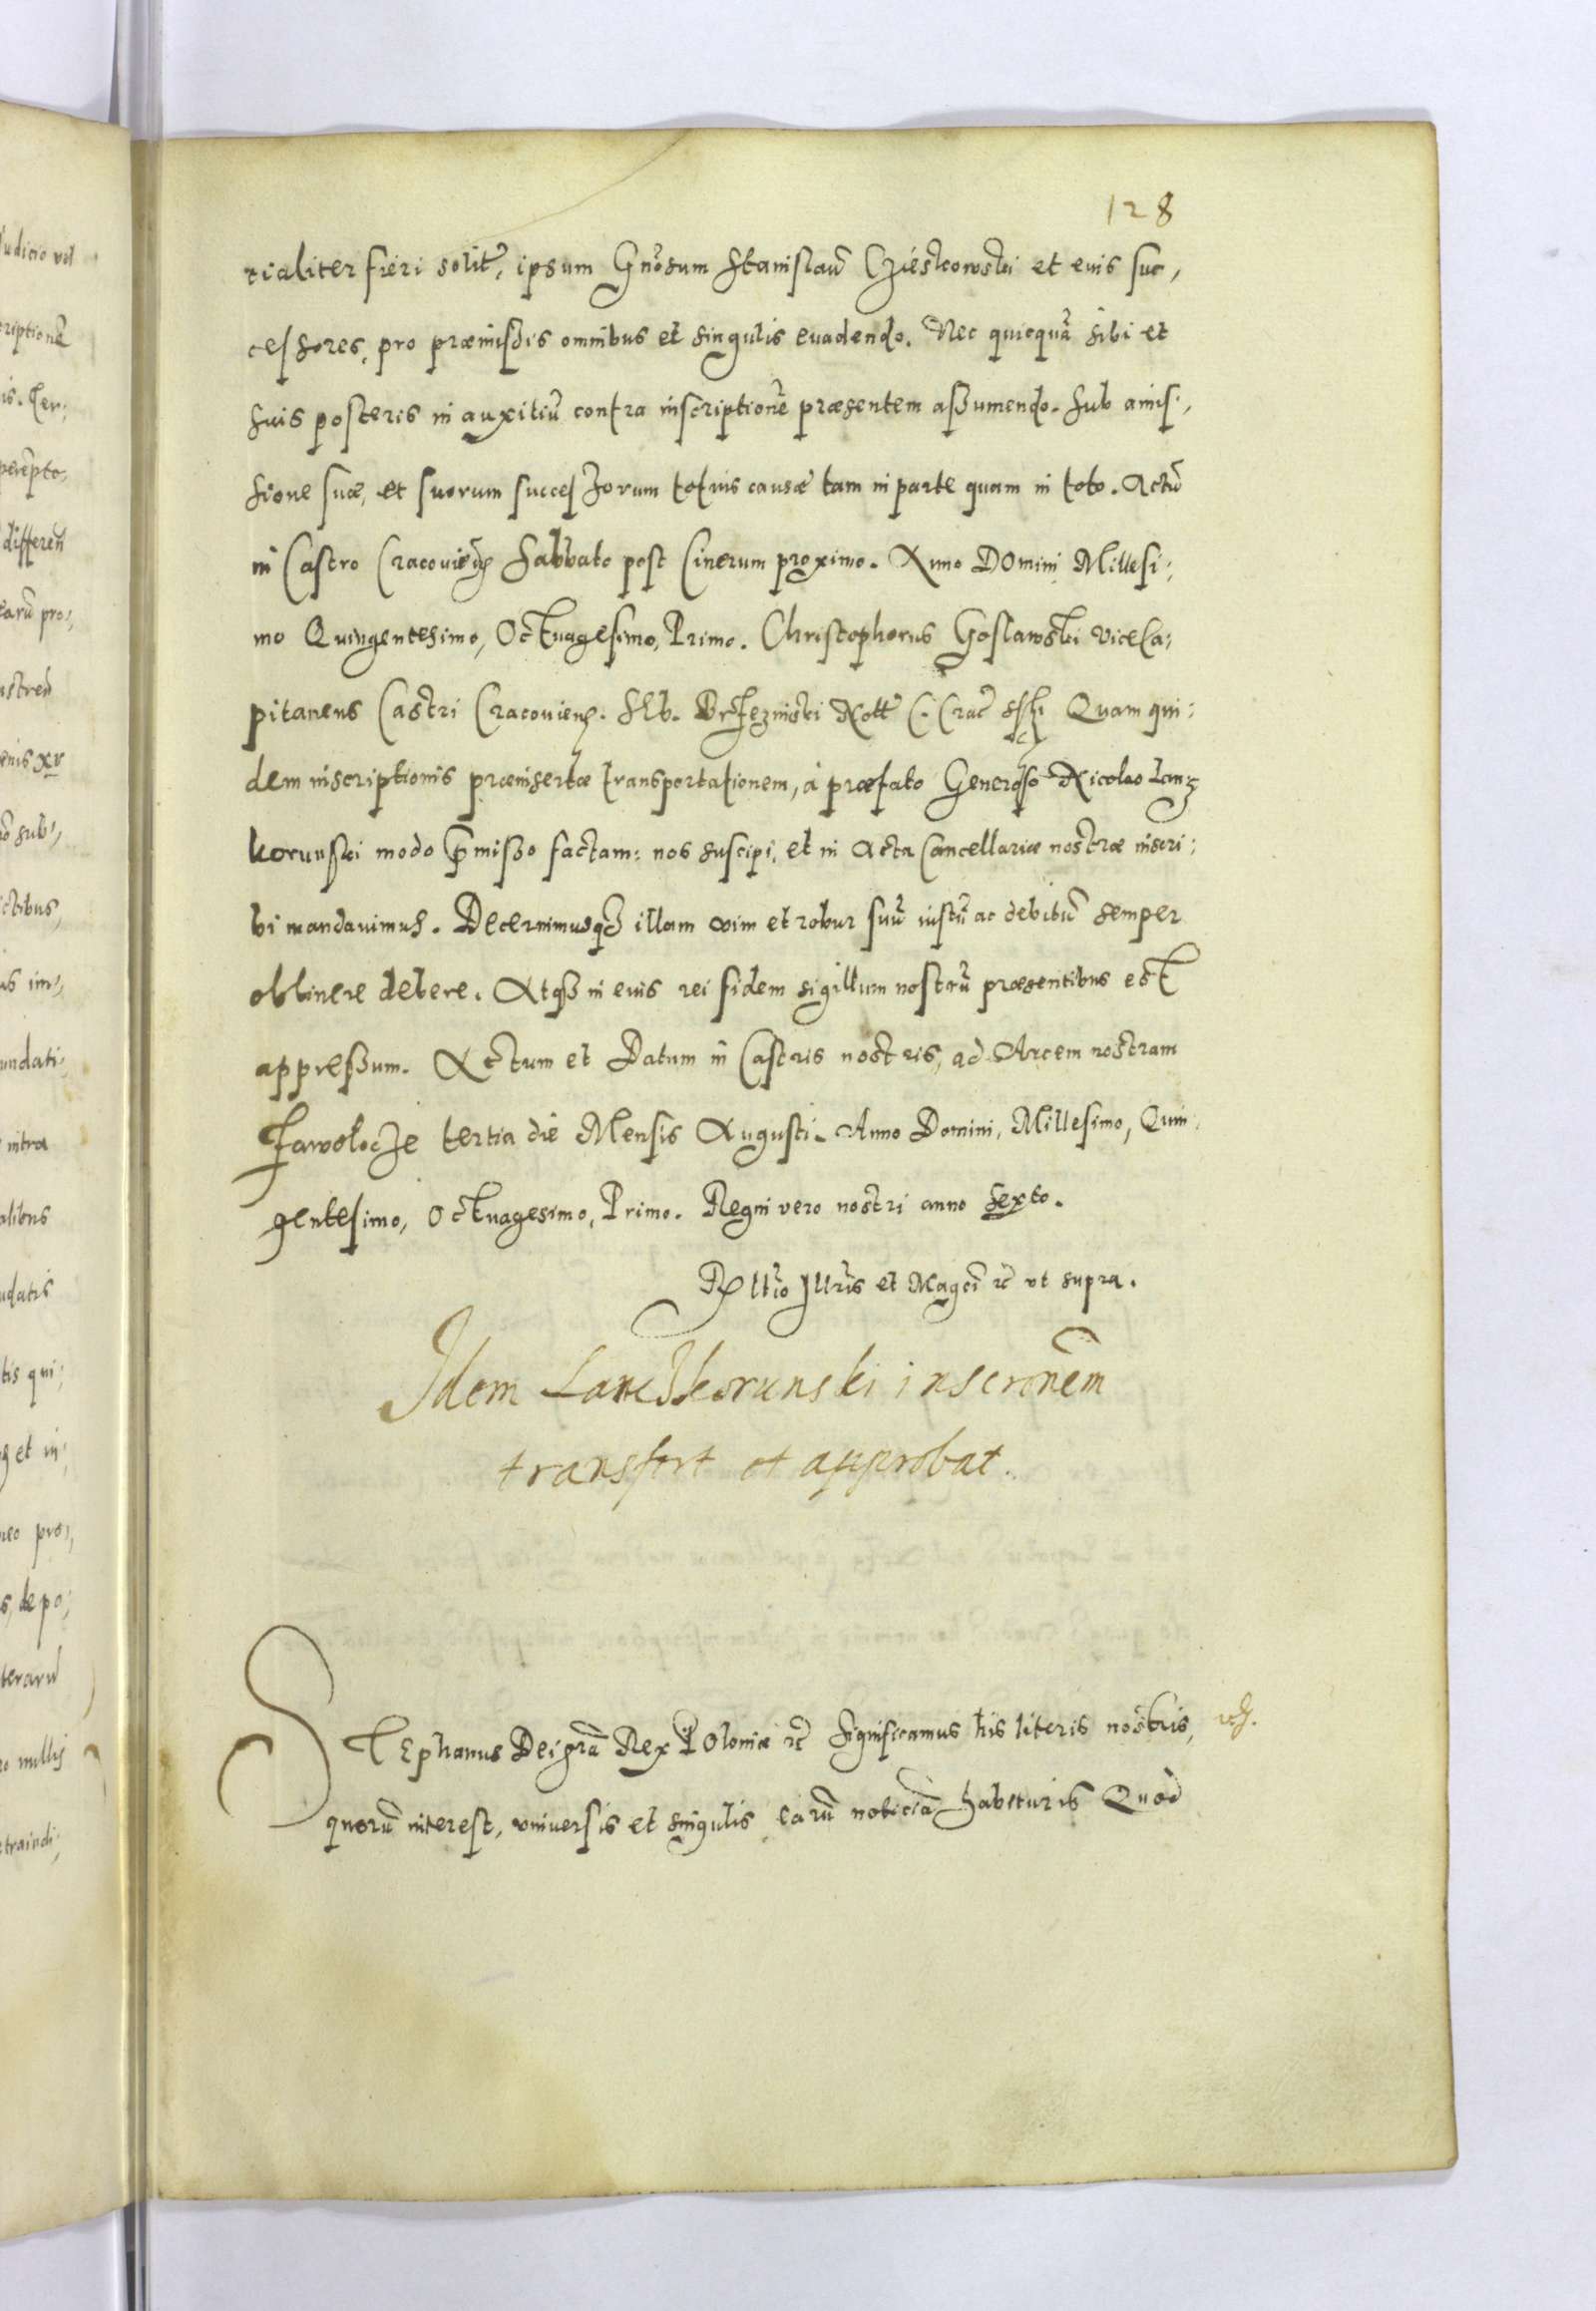 128
rialiter fieri solit̃, ipsum Gn̄osum Stanislaũ Cziesłkowski et eius suc,
cessores, pro præmissis omnibus et singulis evadendo. Nec quicquã sibi et
suis posteris in auxiliũ contra inscriptionẽ præsentem assumendo. Sub amis,
sione suæ, et suorum successorum totius causæ tam in parte quam in toto. Actũ
in Castro Cracovien̄ Sabbato post Cinerum proximo. Anno DOmini Millesi;
mo Quingentesimo, Octuagesimo, Primo. Christophorus Goslawski ViceCa;
pitaneus Castri Cracovien̄. Seb. Brzezinski Nott̃ C. Crac̃ ssḣ Quam qui;
dem inscriptionis præinsertæ transportationem, à præfato Generoso Nicolao Lanz
korunski modo p̄misso factam: nos suscipi, et in Acta Cancellariæ nostræ inscri;
bi mandavimus. Decernimusq̃ illam vim et robur suũ iustũ ac debitũ semper
obtinere debere. Atq̃ in eius rei fidem sigillum nostrũ præsentibus est
appressum. Actum et Datum in Castris nostris, ad Arcem nostram
Zawolocze tertia die Mensis Augusti. Anno Domini, Millesimo, Quin,
gentesimo, Octuagesimo, Primo. Regni vero nostri anno Sexto.
Rellĩo Illr̃is et Magcĩ rc̃ ut supra.
Idem Lanczkorunski inscronẽm
transfert et approbat.
STEphanus Dei grã Rex POloniæ rc̃ Significamus his literis nostris,
quorũ interest, universis et singulis earũ noticiã habituris Quod
udicio vel
riptionẽ
is. Ter;
perẽpto,
differen̄
earũ pro;
enis xv
sub;
ctibus,
as im;
undati;
intra
alibus
udatis
tis qui;
et in;
reo pro;
s, de po;
terarũ
ro nullis
traindi;